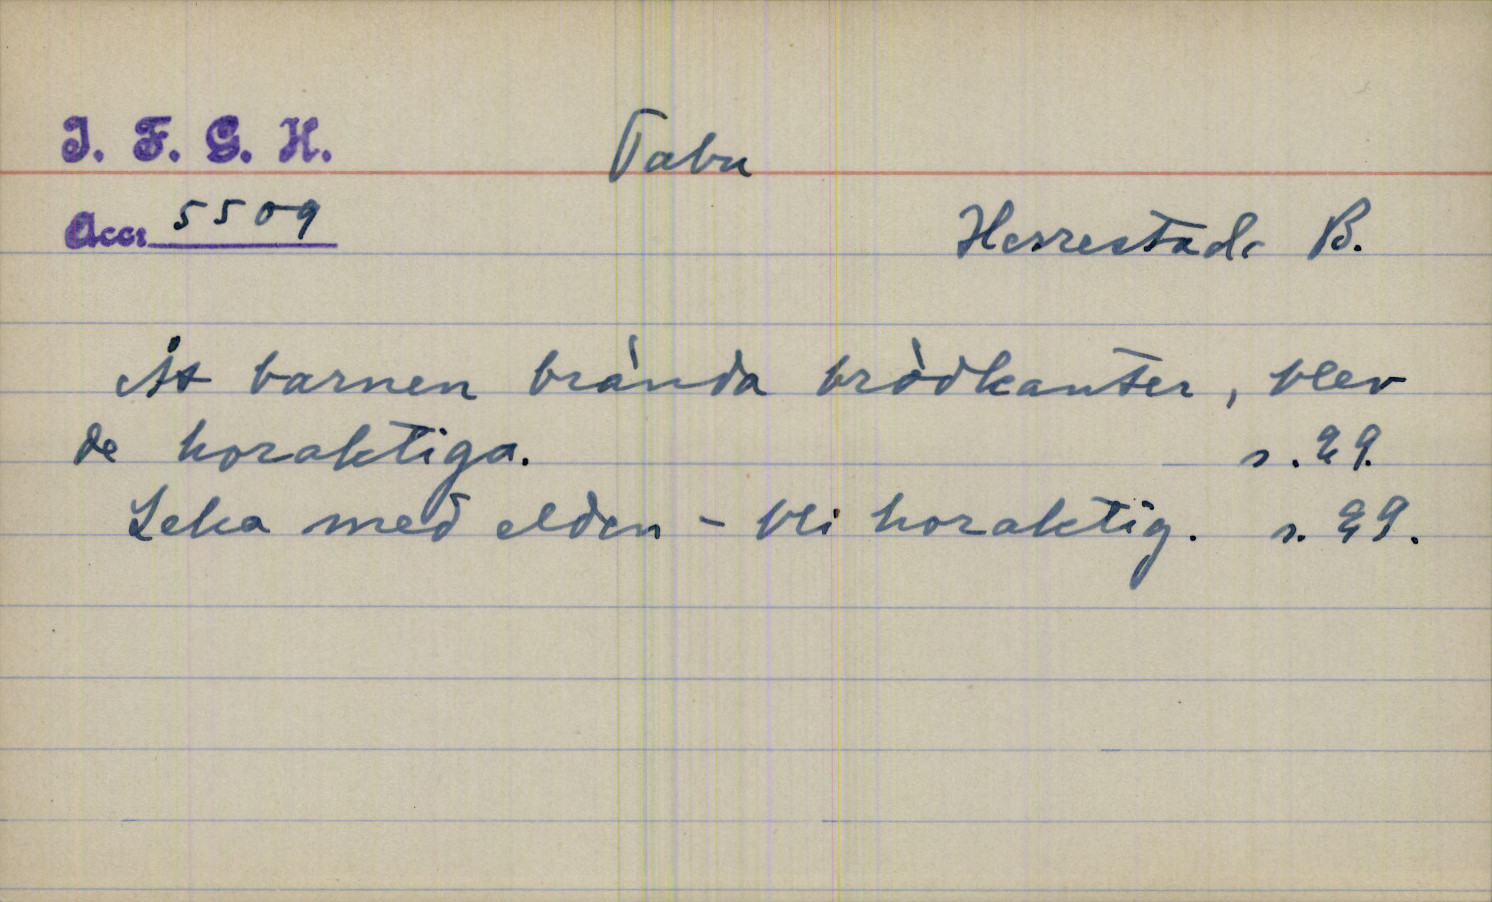 I. F. G. H.
Tabu
Acc: 5509
Herrestads B.
Åt barnen brända brödkanter, blev
de horaktiga. s. 29.
Leka med elden - bli horaktig. s. 29.